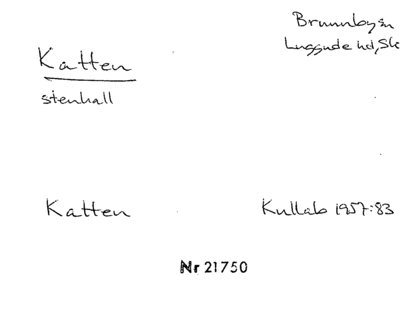 Brunnby sn
Luggude hd, Sk
Katten
stenhall
Katten Kullab 1957:83
Nr 21750